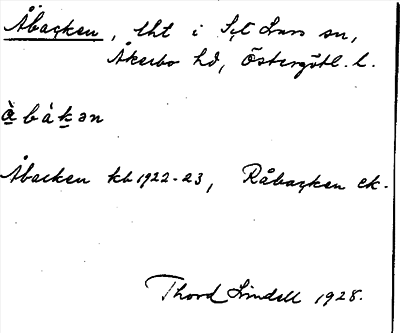 Åbacken, lht i S:t Lars sn,
Åkerbo hd, Östergötl. l.
å̀bàkən
Åbacken kb 1922-23, Råbacken ek.
Thord Lindell 1928.